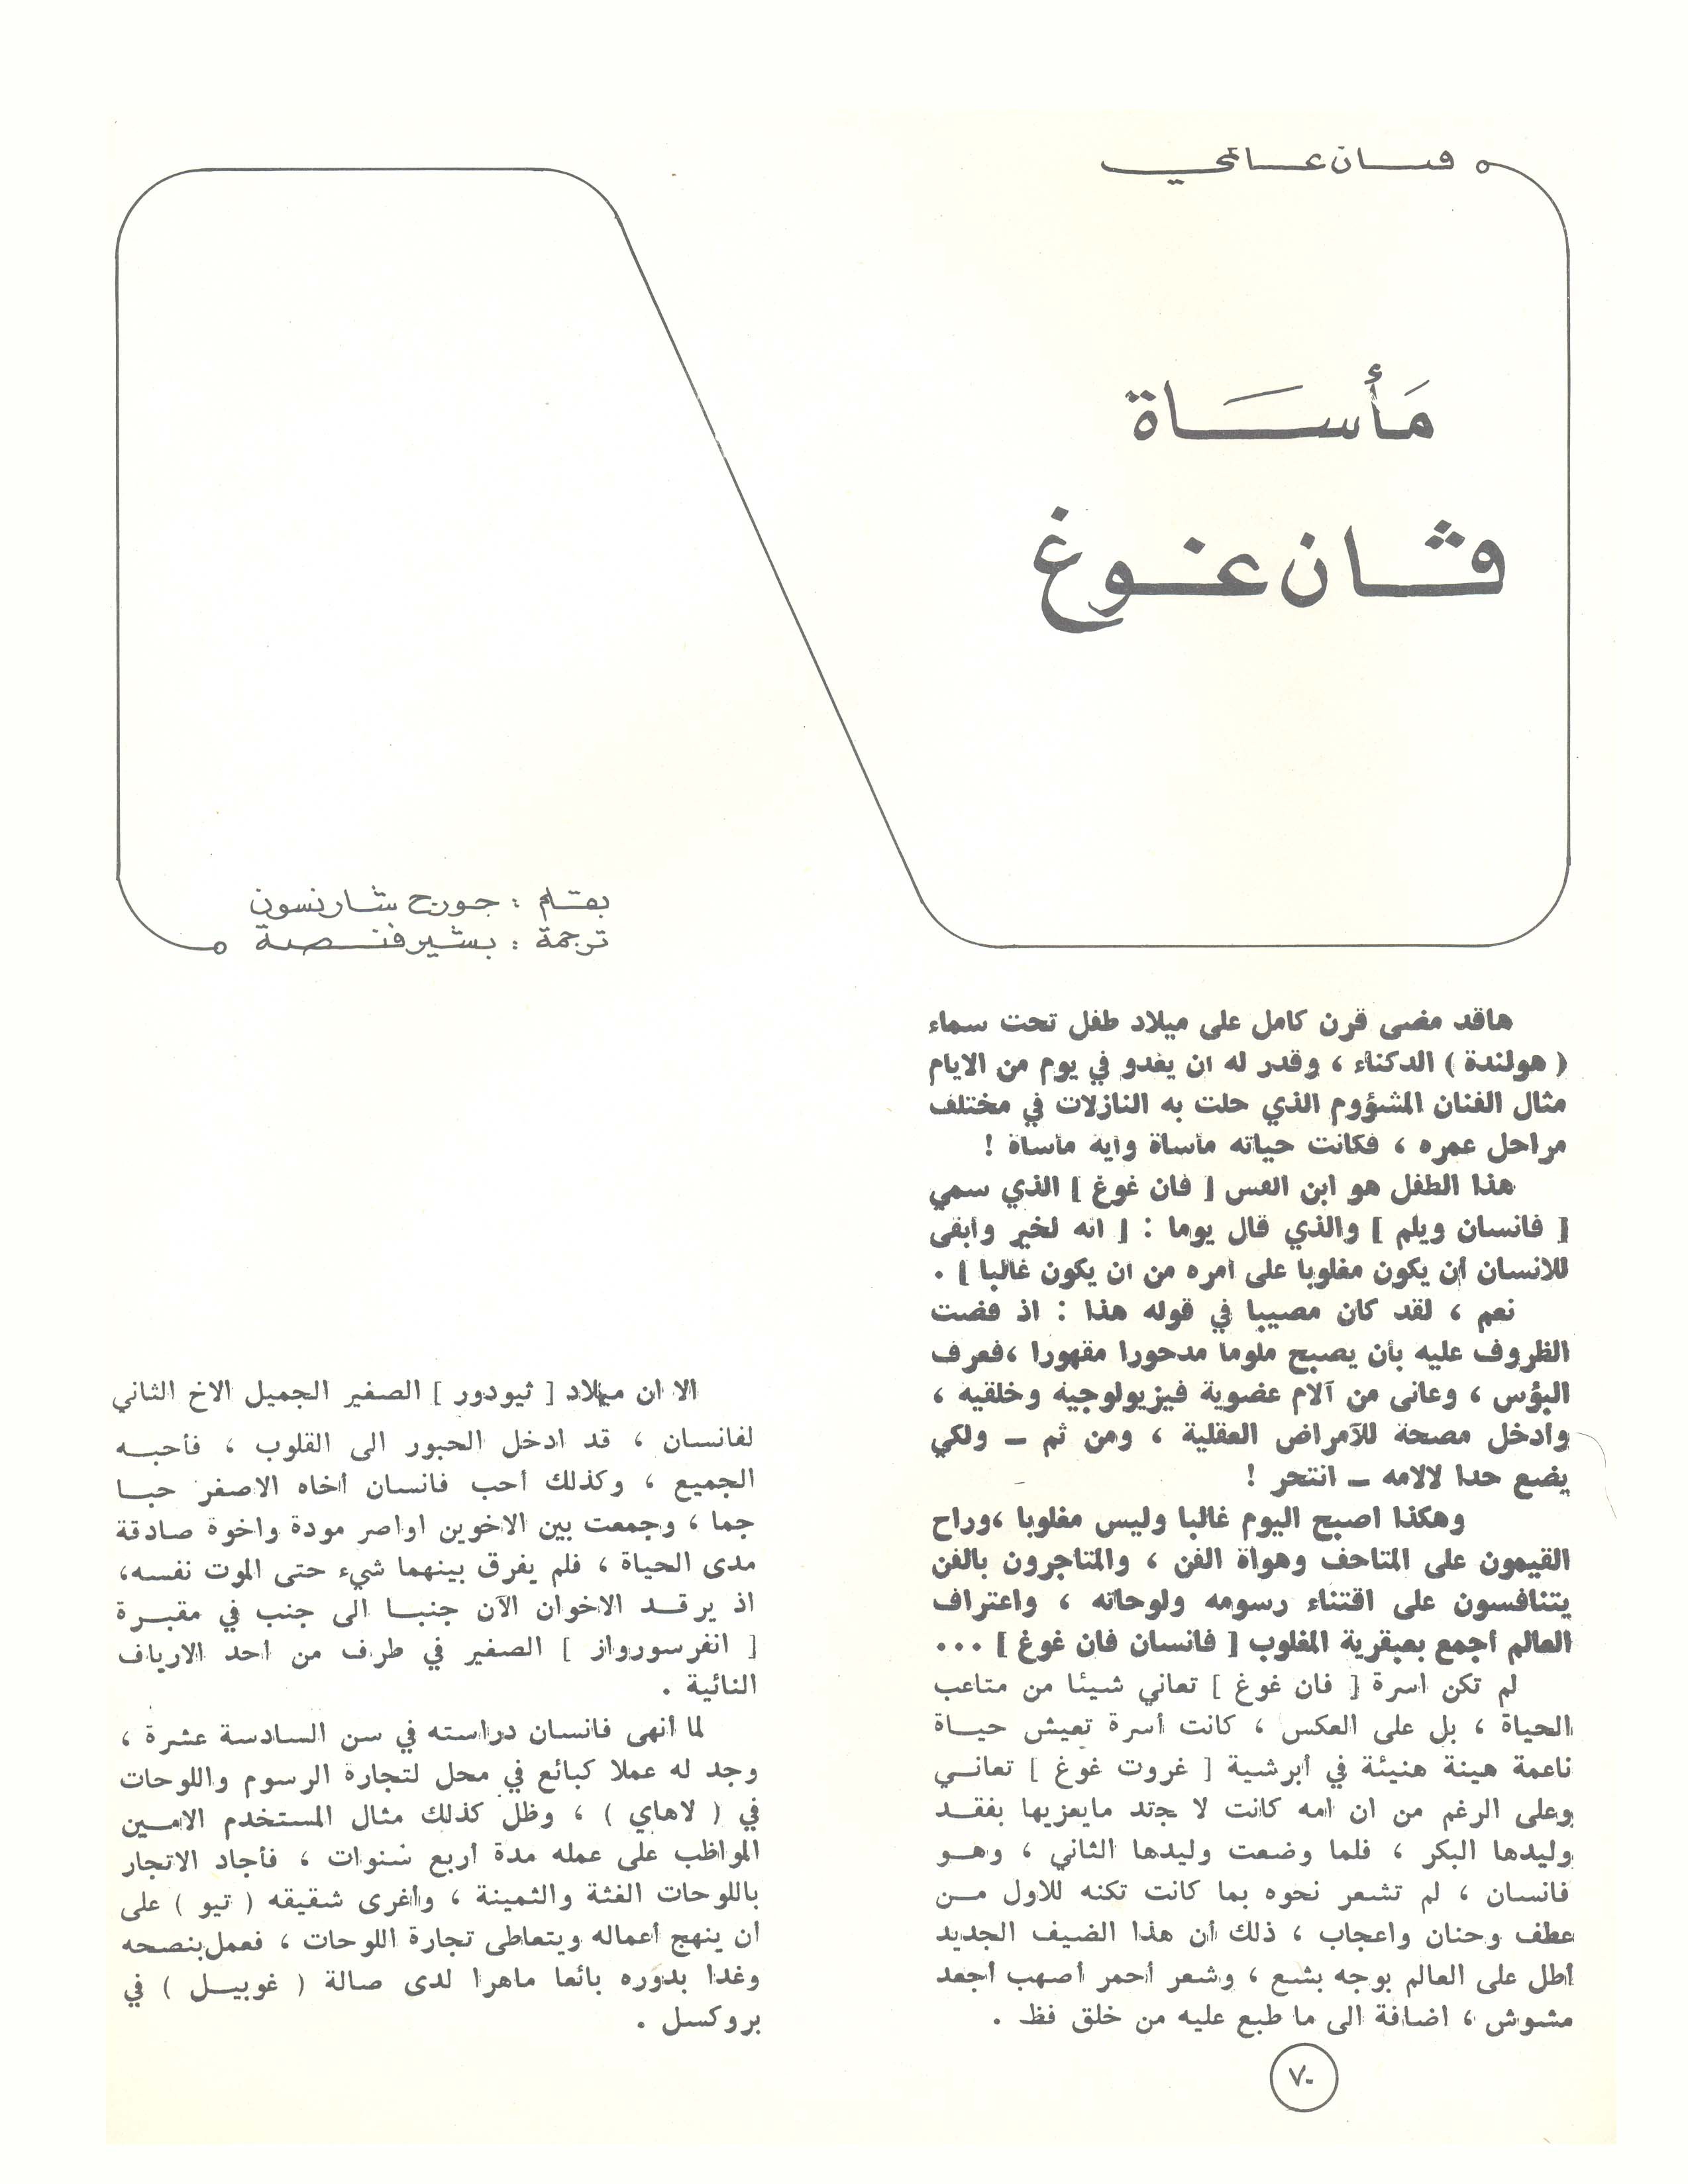 فنان عالمي
مأساة
ڤان غوغ
بقلم : جورج شارنسون
ترجمة : بشير فنصة
هاقد مضى قرن كامل على ميلاد طفل تحت سماء
( هولندة ) الدكناء ، وقدر له ان يغدو في يوم من الايام
مثال الفنان المشؤوم الذي حلت به النازلات في مختلف
مراحل عمره ، فكانت حياته مأساة وأية مأساة !
هذا الطفل هو ابن القس [ فان غوغ ] الذي سمي
[ فانسان ويلم ] والذي قال يوما : [ انه لخير وأبقى
للانسان أن يكون مغلوبا على أمره من ان يكون غالبا ] .
نعم ، لقد كان مصيبا في قوله هذا : اذ قضت
الظروف عليه بأن يصبح ملوما مدحورا مقهورا ،فعرف
البؤس ، وعانى من آلام عضوية فيزيولوجية وخلقيه ،
وأدخل مصحة للآمراض العقلية ، ومن ثم ــ ولكي
يضع حدا لالامه ــ انتحر !
وهكذا اصبح اليوم غالبا وليس مغلوبا ،وراح
القيمون على المتاحف وهواة الفن ، والمتاجرون بالفن
يتنافسون على اقتناء رسومه ولوحاته ، واعتراف
العالم أجمع بعبقرية المغلوب [ فانسان فان غوغ ] ...
لم تكن اسرة [ فان غوغ ] تعاني شيئا من متاعب
الحياة ، بل على العكس ، كانت أسرة تعيش حياة
ناعمة هينة هنيئة في أبرشية [ غروت غوغ ] تعاني
وعلى الرغم من ان امه كانت لا جتد مايعزيها بفقد
وليدها البكر ، فلما وضعت وليدها الثاني ، وهو
فانسان ، لم تشعر نحوه بما كانت تكنه للاول من
عطف وحنان واعجاب ، ذلك أن هذا الضيف الجديد
أطل على العالم بوجه بشع ، وشعر أحمر أصهب أجعد
مشوش ، اضافة الى ما طبع عليه من خلق فظ .
الا ان ميلاد [ ثيودور ] الصغير الجميل الاخ الثاني
لفانسان ، قد ادخل الحبور الى القلوب ، فأحبه
الجميع ، وكذلك أحب فانسان أخاه الاصغر حبا
جما ، وجمعت بين الاخوين اواصر مودة واخوة صادقة
مدى الحياة ، فلم يفرق بينهما شيء حتى الموت نفسه،
اذ يرقد الاخوان الآن جنبا الى جنب في مقبرة
[ انفرسورواز ] الصغير في طرف من أحد الارياف
النائية .
لما أنهى فانسان دراسته في سن السادسة عشرة ،
وجد له عملا كبائع في محل لتجارة الرسوم واللوحات
في ( لاهاي ) ، وظل كذلك مثال المستخدم الامين
المواظب على عمله مدة أربع سنوات ، فأجاد الاتجار
باللوحات الغثة والثمينة ، وأغرى شقيقه ( تيو ) على
أن ينهج أعماله ويتعاطى تجارة اللوحات ، فعمل بنصحه
وغدا بدوره بائعا ماهرا لدى صالة ( غوبيل ) في
بروكسل .
٧٠